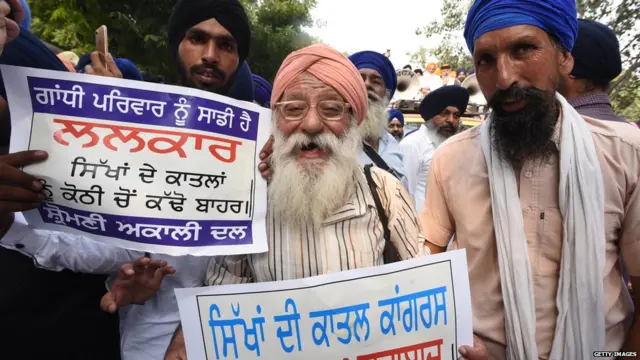 ਗਾਂਧੀ ਪਰਿਵਾਰ ਨੂੰ ਸਾਡੀ ਹੈ
ਲਲਕਾਰ
ਸਿੱਖਾਂ ਦੇ ਕਾਤਲਾਂ
ਨੂੰ ਕੋਠੀ ਚੋਂ ਕੱਢੋ ਬਾਹਰ।
ਸ਼੍ਰੋਮਣੀ ਅਕਾਲੀ ਦਲ
ਸਿੱਖਾਂ ਦੀ ਕਾਤਲ ਕਾਂਗਰਸ
GETTY IMAGES